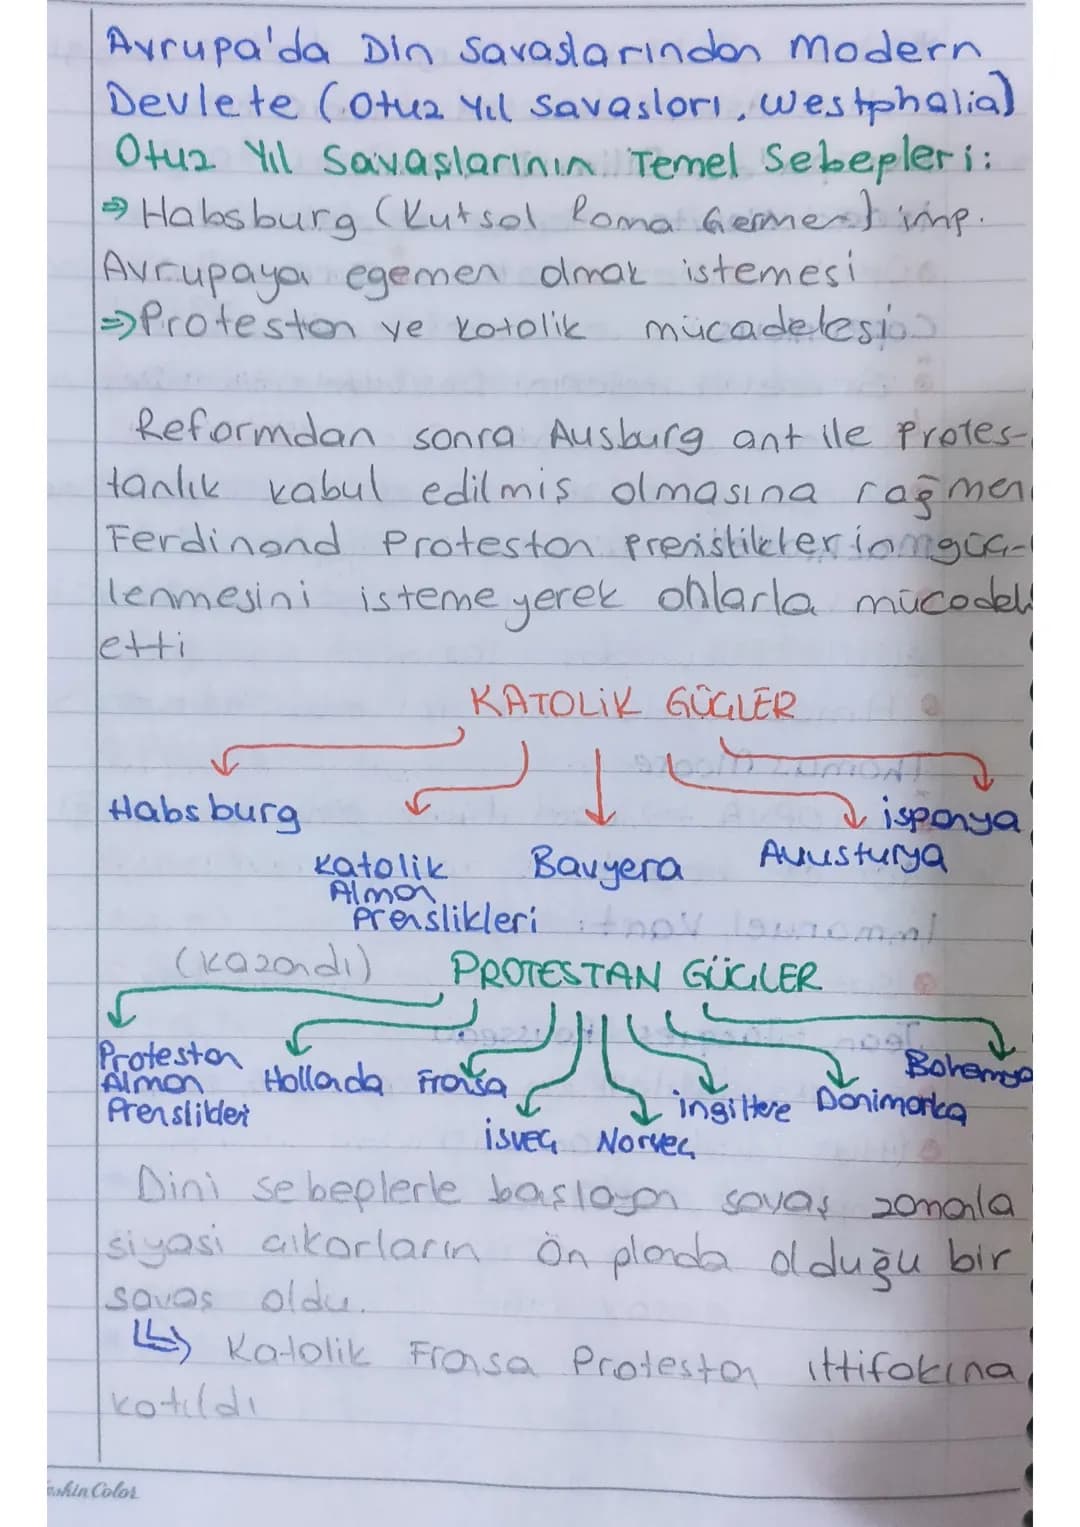 Avrupa'da Din Savaslarından Modern
Devlete (Otuz Yıl Savasları, Westphalia)
Otuz Yıl Savaşlarının Temel Sebepleri:
⇒ Habsburg (Kutsal Roma Germen) imp.
Avrupaya egemen olmak istemesi
⇒ Protestan ve Katolik mücadelesi
Reformdan sonra Ausburg ant ile Protes-
tanlık kabul edilmis olmasına rağmen
Ferdinand Protestan prensliklerin güç-
lenmesini istemeyerek onlarla mücadele
etti
KATOLİK GÜÇLER
Habsburg
Katolik
Alman
Prenslikleri
Bavyera
Avusturya
ispanya
(kazandı) PROTESTAN GÜÇLER
Protestan
Alman
Prenslikleri
Hollanda
Fransa
isveç
Norveç
ingiltere
Danimarka
Bohemya
Dini sebeplerle başlayan savaş zamanla
siyasi çıkarların ön planda olduğu bir
savas oldu.
↳ Katolik Fransa Protestan ittifakına
katıldı